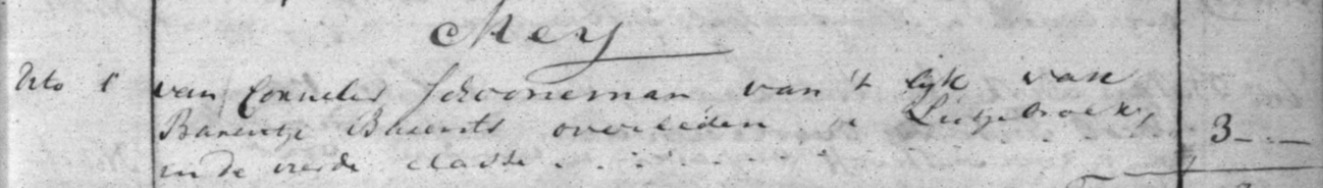 Meij
No 1 van Cornelis Schooneman van 't lijk van
Barentje Barents overleden te Lutjebroek,
in de vierde classe . . . . . . . . 3 – . –